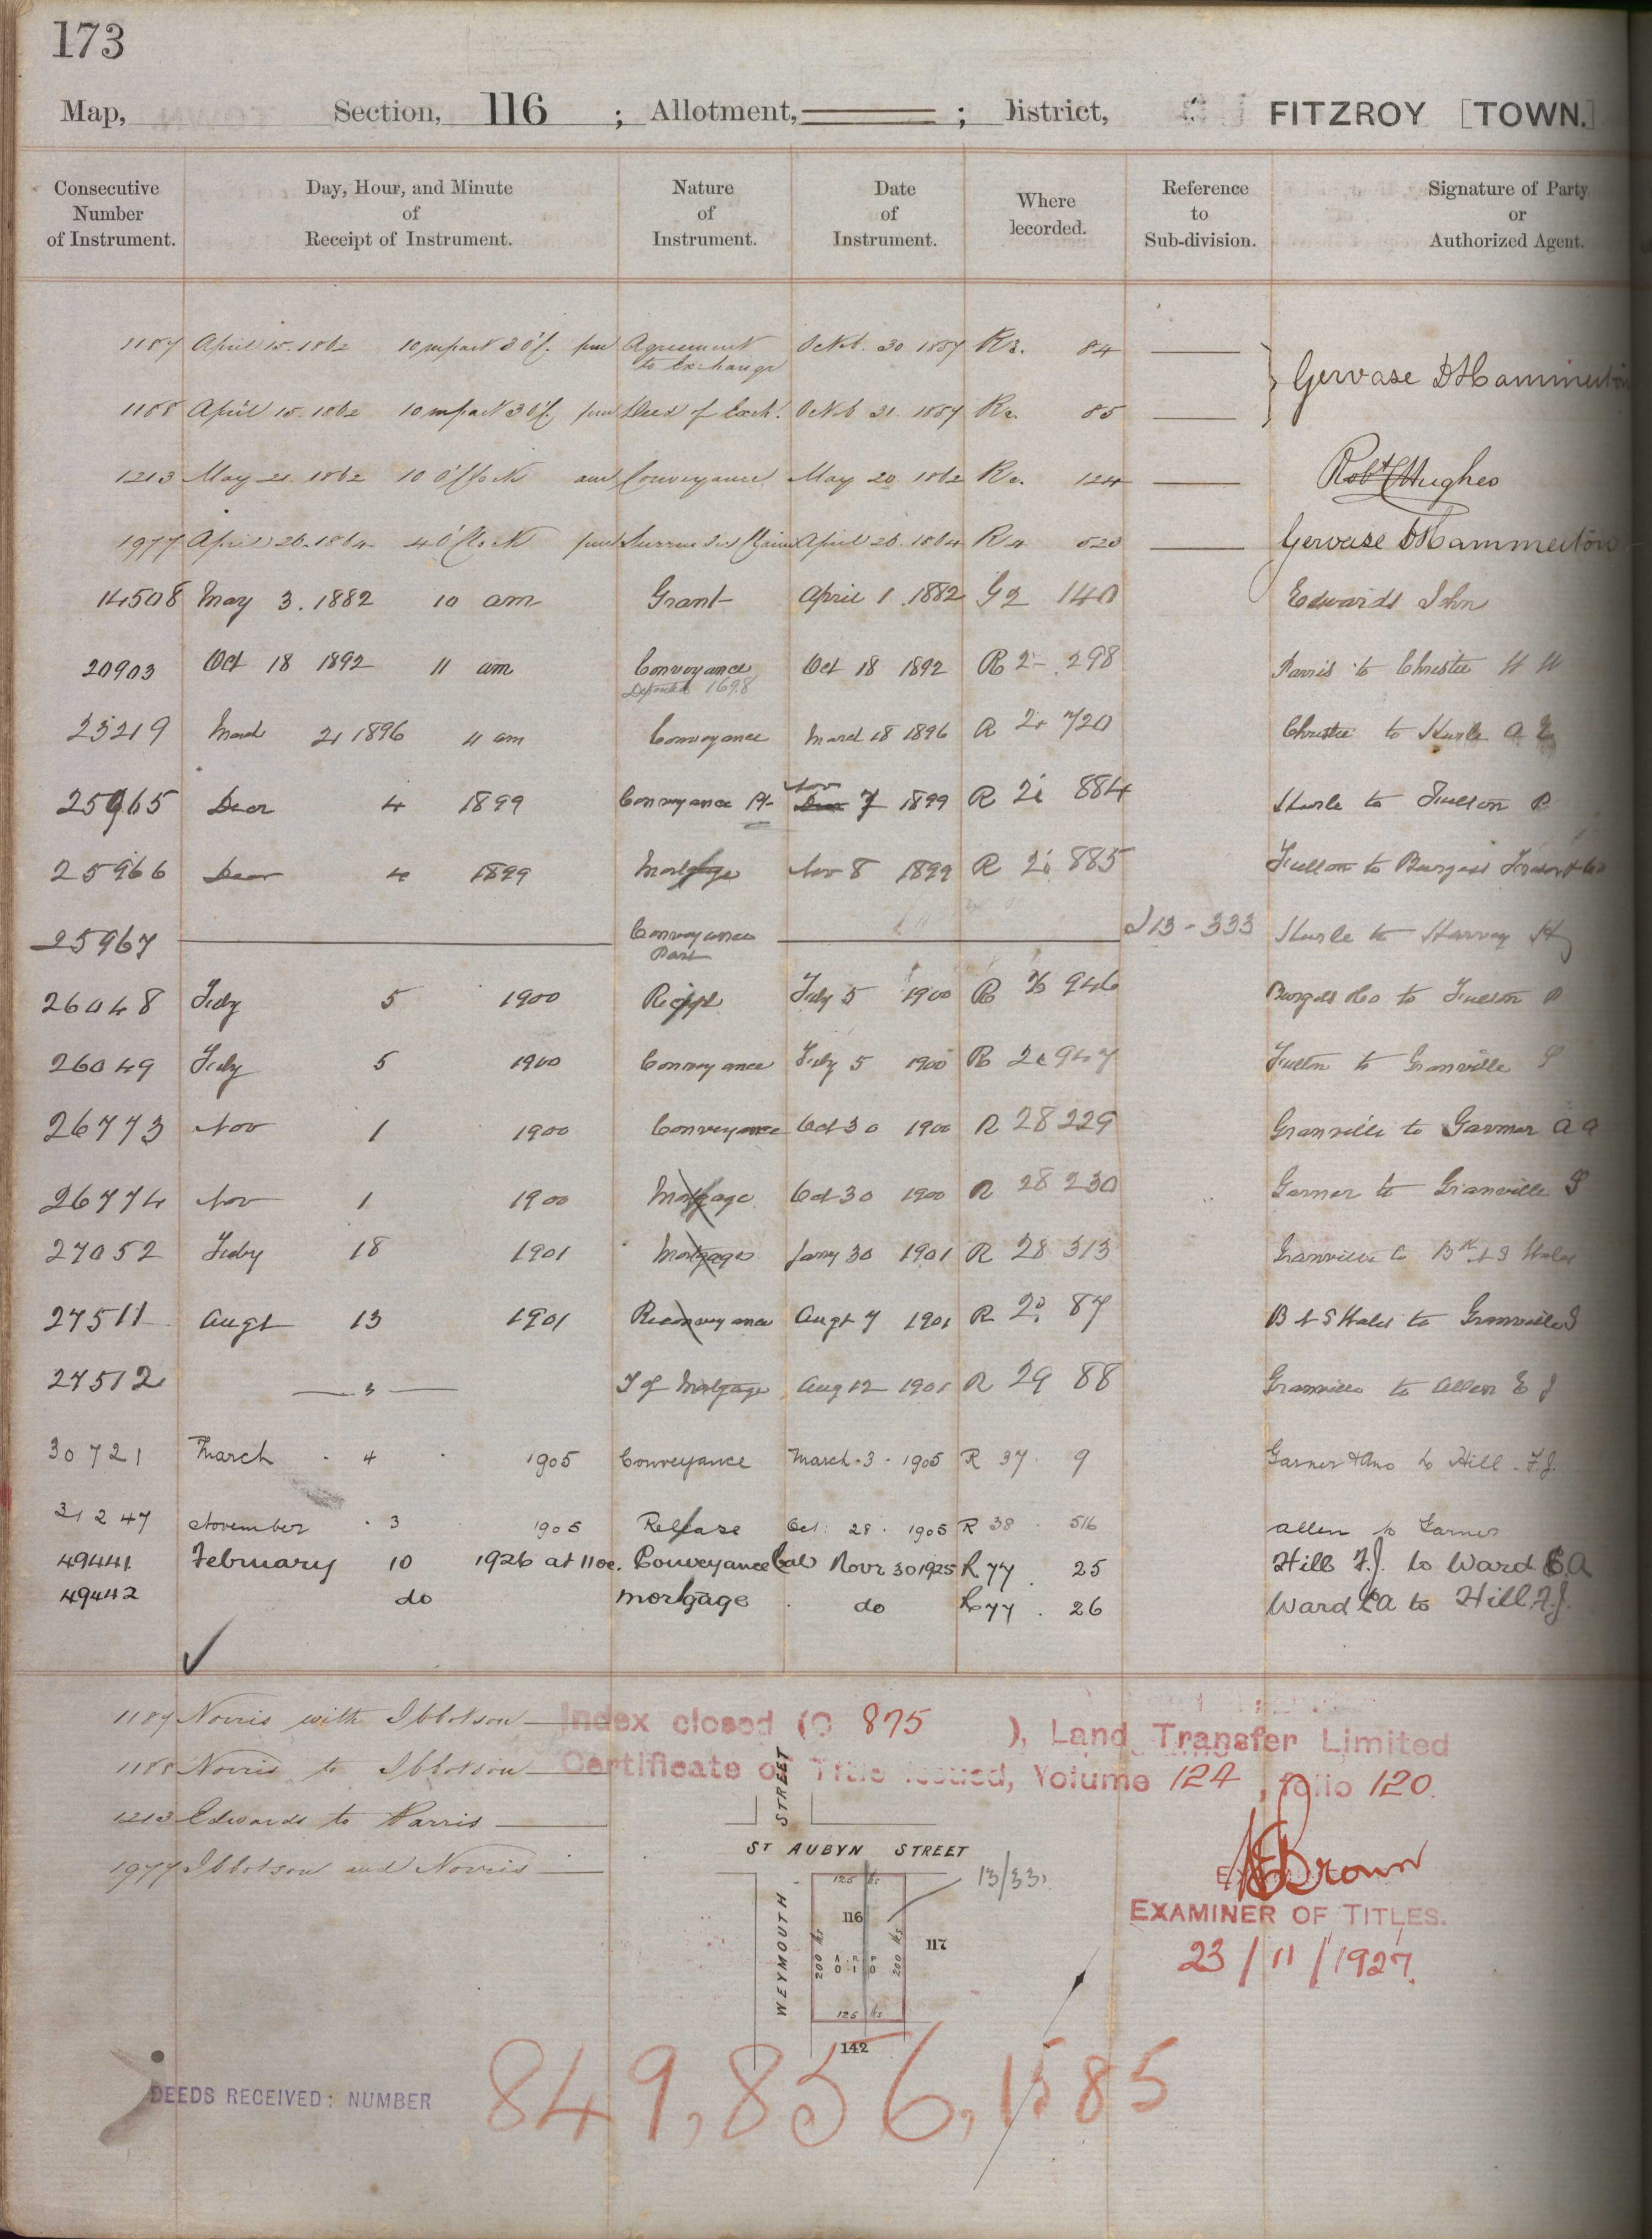 173
Map, Section, 116 ; Allotment, ; District, FITZROY [TOWN.]
Consecutive Number of Instrument. Day, Hour, and Minute of Receipt of Instrument. Nature of Instrument. Date of Instrument. Where Recorded. Reference to Sub-division. Signature of Party or Authorized Agent.
1187 April 15. 1862 10 m past 3 O'C. pm Agreement to Exchange Octb. 30 1857 R2. 84 Gervase D Hammerton
1188 April 15. 1862 10 m past 3 O'C. pm Deed of Exch. Octb 31 1857 R2. 85
1213 May 21. 1862 10 O'Clock am Conveyance May 20 1862 R2. 124 Robt C Hughes
1977 April 26. 1864 4 O'Clock pm April 26. 1864 R4 523 Gervase D Hammerton
14508 May 3. 1882 10 am Grant April 1. 1882 G2 140 Edwards John
20903 Oct 18 1892 11 am Conveyance Oct 18 1892 R 298 Parris to Christie
Deposited 1698
23219 March 21 1896 11 am Conveyance March 18 1896 R 720 Christie to Hurle A E
25965 Decr 4 1899 Conveyance Pt Nov 7 1899 R 884 Hurle to Fulton
25966 Decr 4 1899 Mortgage Nov 8 1899 R 885 Fulton to Burgess Fraser & Co
25967 Conveyance Part D 13 - 333 Hurle to Harvey
26048 Feby 5 1900 Receipt Feby 5 1900 R 26 946 Burgess & Co to Fulton
26049 Feby 5 1900 Conveyance Feby 5 1900 R 26 947 Fulton to Granville S
26773 Nov 1 1900 Conveyance Oct 30 1900 R 28 229 Granville to Garner A A
26774 Nov 1 1900 Mortgage Oct 30 1900 R 28 230 Garner to Granville S
27052 Feby 18 1901 Mortgage Jany 30 1901 R 28 313 Granville to Bk N S Wales
27511 Augt 13 1901 Reconveyance Augt 7 1901 R 29 87 B N S Wales to Granville S
27512 T of Mortgage Aug 12 1901 R 29 88 Granville to Allen E J
30721 March 4 1905 Conveyance March 3 1905 R 37 9 Garner & Ano to Hill F.J.
31247 November 3 1905 Release Oct. 28. 1905 R 38 516 Allen to Garner
49441 February 10 1926 at 11 oc. Conveyance Bal Novr 30 1925 R 77. 25 Hill F.J. to Ward C A
49442 do Mortgage do R 77. 26 Ward C A to Hill F.J.
1187 Norris with Ibbotson
1188 Norris to Ibbotson
1213 Edwards to Parris
1977 Ibbotson and Norris
Index closed (O 875 ), Land Transfer Limited
Certificate of Title issued, Volume 124, folio 120.
Brown
EXAMINER OF TITLES.
23/11/1927.
STREET
ST AUBYN STREET
13/33
WEYMOUTH
125 lks
116
117
200 lks
A. R. P
0 1 0
200 lks
125 lks
142
DEEDS RECEIVED: NUMBER 849, 856, 1585